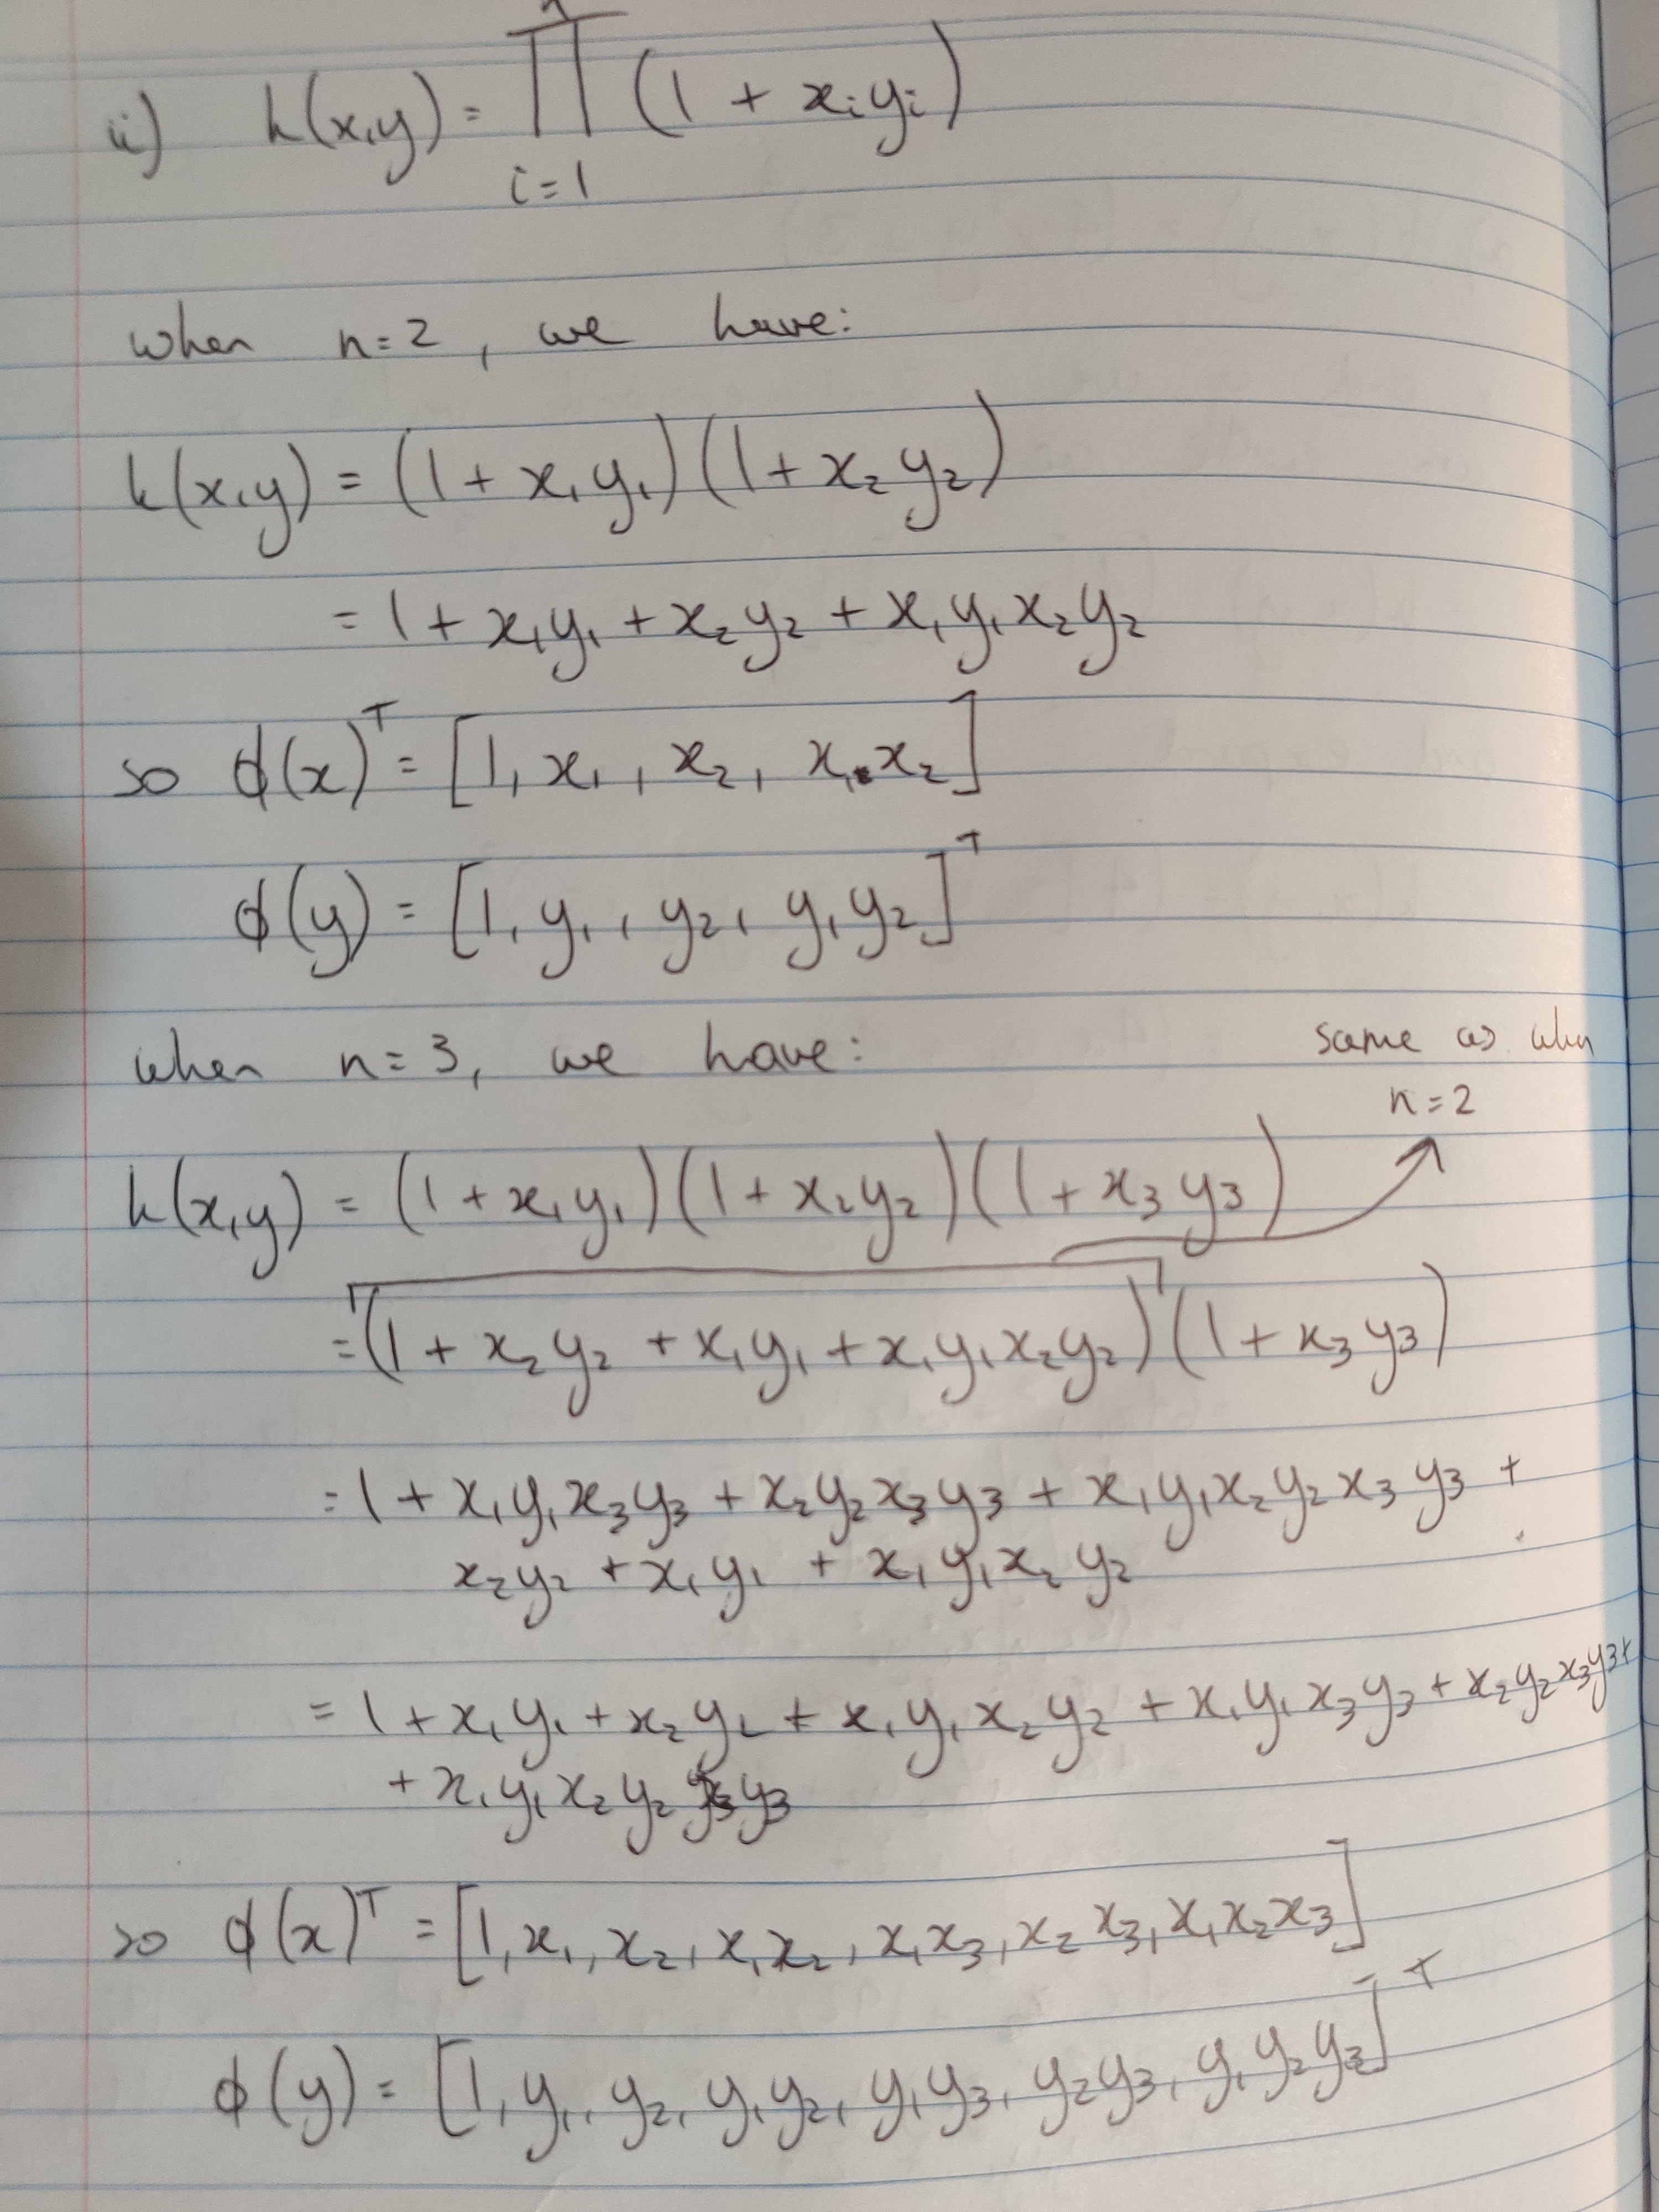 ii) k(x,y) = ∏_{i=1}^{n} (1 + xᵢyᵢ)
when n=2, we have:
k(x,y) = (1 + x₁y₁)(1 + x₂y₂)
= 1 + x₁y₁ + x₂y₂ + x₁y₁x₂y₂
so ϕ(x)ᵀ = [1, x₁, x₂, x₁x₂]
ϕ(y) = [1, y₁, y₂, y₁y₂]ᵀ
when n=3, we have:
same as when
n=2
k(x,y) = (1 + x₁y₁)(1 + x₂y₂)(1 + x₃y₃)
= (1 + x₂y₂ + x₁y₁ + x₁y₁x₂y₂)(1 + x₃y₃)
= 1 + x₁y₁x₃y₃ + x₂y₂x₃y₃ + x₁y₁x₂y₂x₃y₃ +
x₂y₂ + x₁y₁ + x₁y₁x₂y₂
= 1 + x₁y₁ + x₂y₂ + x₁y₁x₂y₂ + x₁y₁x₃y₃ + x₂y₂x₃y₃ +
+ x₁y₁x₂y₂x₃y₃
so ϕ(x)ᵀ = [1, x₁, x₂, x₁x₂, x₁x₃, x₂x₃, x₁x₂x₃]
ϕ(y) = [1, y₁, y₂, y₁y₂, y₁y₃, y₂y₃, y₁y₂y₃]ᵀ